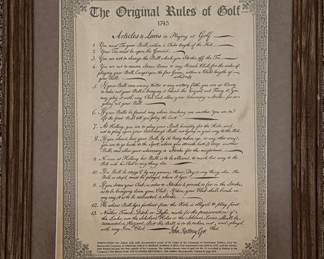 The Original Rules of Golf
1745
Articles & Laws in Playing at Golf
1. You must Tee your Ball, within a Club's length of the Hole.
2. Your Tee must be upon the Ground.
3. You are not to change the Ball which you Strike off the Tee.
4. You are not to remove Stones, Bones or any Break Club for the sake of
playing your Ball, Except upon the fair Green, within a Club's length of
your Ball.
5. If your Ball comes among Water or any watery filth, you are at liberty
to take out your Ball & bringing it behind the hazard and Teeing it, you
may play it with any Club and allow your Adversary a Stroke for so
getting out your Ball.
6. If your Balls be found any where touching one another, You are to
lift the first Ball till you play the last.
7. At Holling, you are to play your Ball honestly for the Hole, and
not to play upon your Adversary's Ball, not lying in your way to the Hole.
8. If you should lose your Ball, by its being taken up, or any other way,
you are to go back to the Spot, where you struck last & drop another
Ball, and allow your adversary a Stroke for the misfortune.
9. No man at Holling his Ball is to be allowed, to mark his way to the
Hole with his Club or any thing else.
10. If a Ball be stopp'd by any person, Horse, Dog or any thing else, the
Ball so stop'd must be played where it lyes.
11. If you draw your Club, in order to Strike & proceed so far in the Stroke,
as to be bringing down your Club; If then, your Club shall break, in
any way, it is to be Accounted a Stroke.
12. He whose Ball lyes farthest from the Hole is obliged to play first.
13. Neither Trench, Ditch or Dyke, made for the preservation of
the Links, nor the Scholar's Holes or the Soldier's Lines, Shall be
accounted a Hazard; But the Ball is to be taken out, and play'd
with any Iron Club.
John Rattray, Cpt